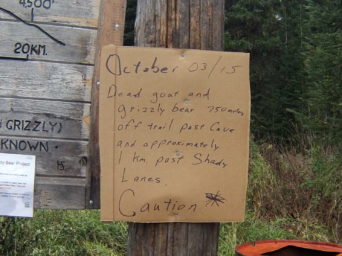 4,500'
20KM.
GRIZZLY)
KNOWN.
October 03/15
Dead goat and
grizzly bear 750 miles
off trail past Cave
and approximately
1 km past Shady
Lanes.
Caution